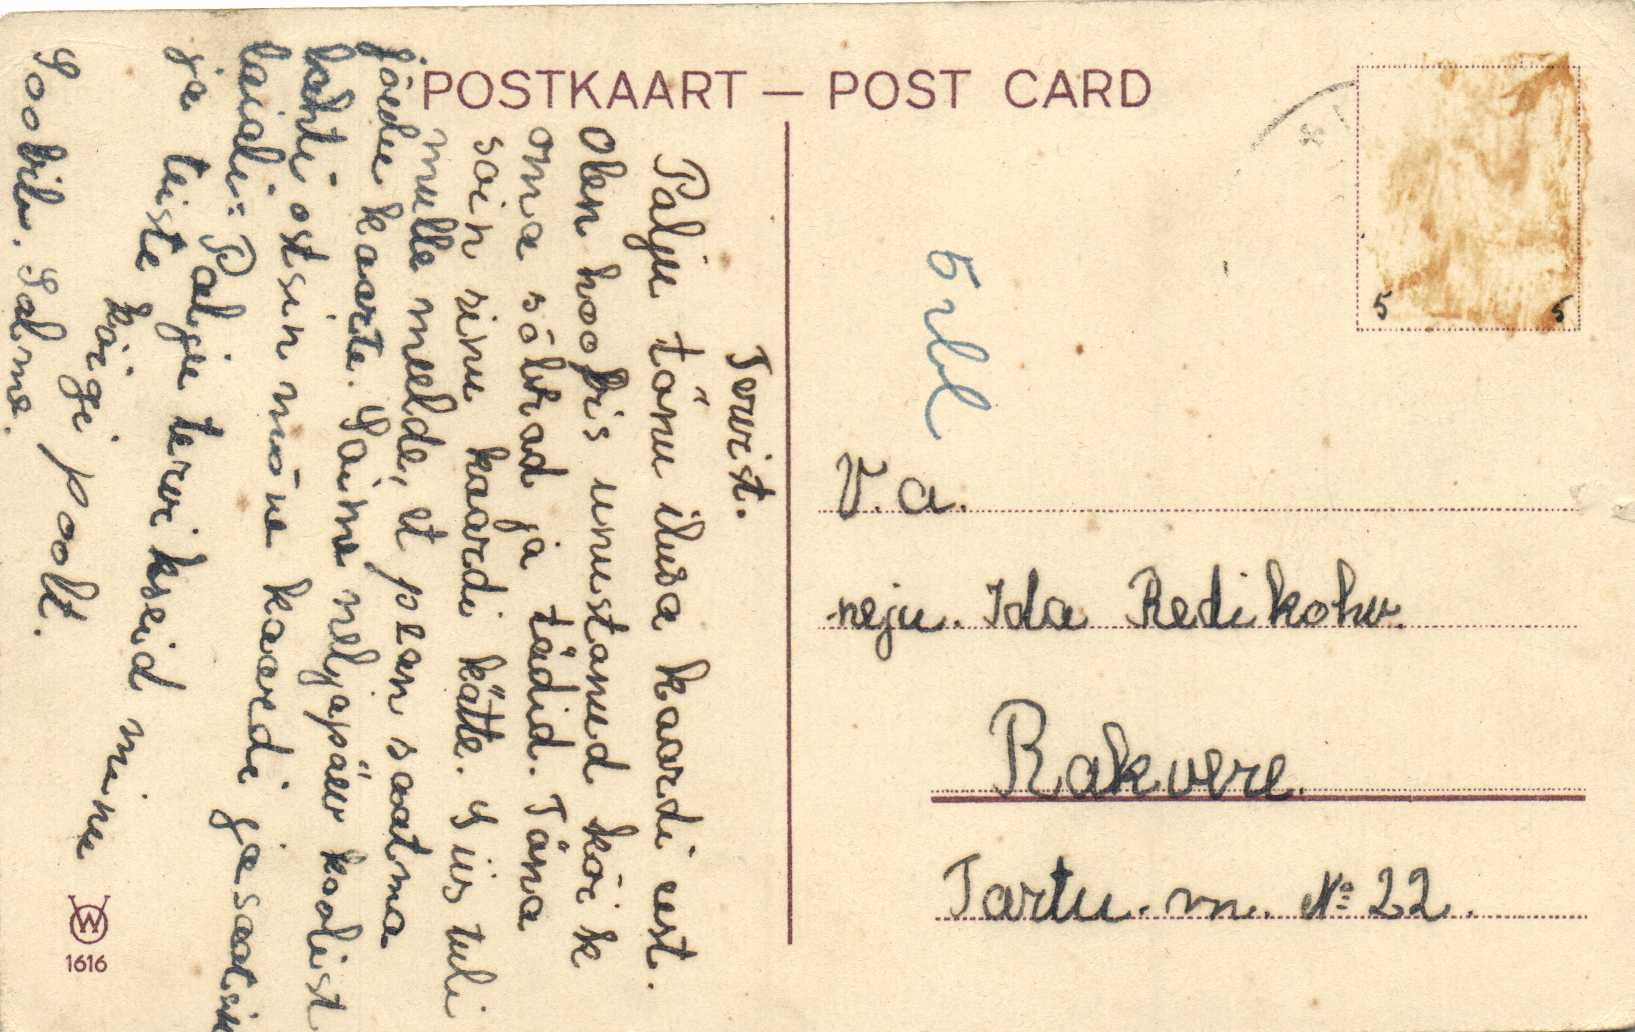 POSTKAART — POST CARD
Tervist.
Palju tänu ilusa kaardi eest.
Olen hoopis unustanud kõik
oma sõbrad ja tädid. Täna
sain sinu kaardi kätte. Siis tuli
mulle meelde, et pean saatma
jõulu kaarte. Saime neljapäew koolist
lahti ostsin mõne kaardi ja saatsin
laiali: Palju terwikseid minu
ja teiste kõigi poolt.
Soobib. Salme.
5 rbl
V. a.
neju. Ida Redikohw.
Rakvere.
Tartu. m. № 22.
5 5
W
1616